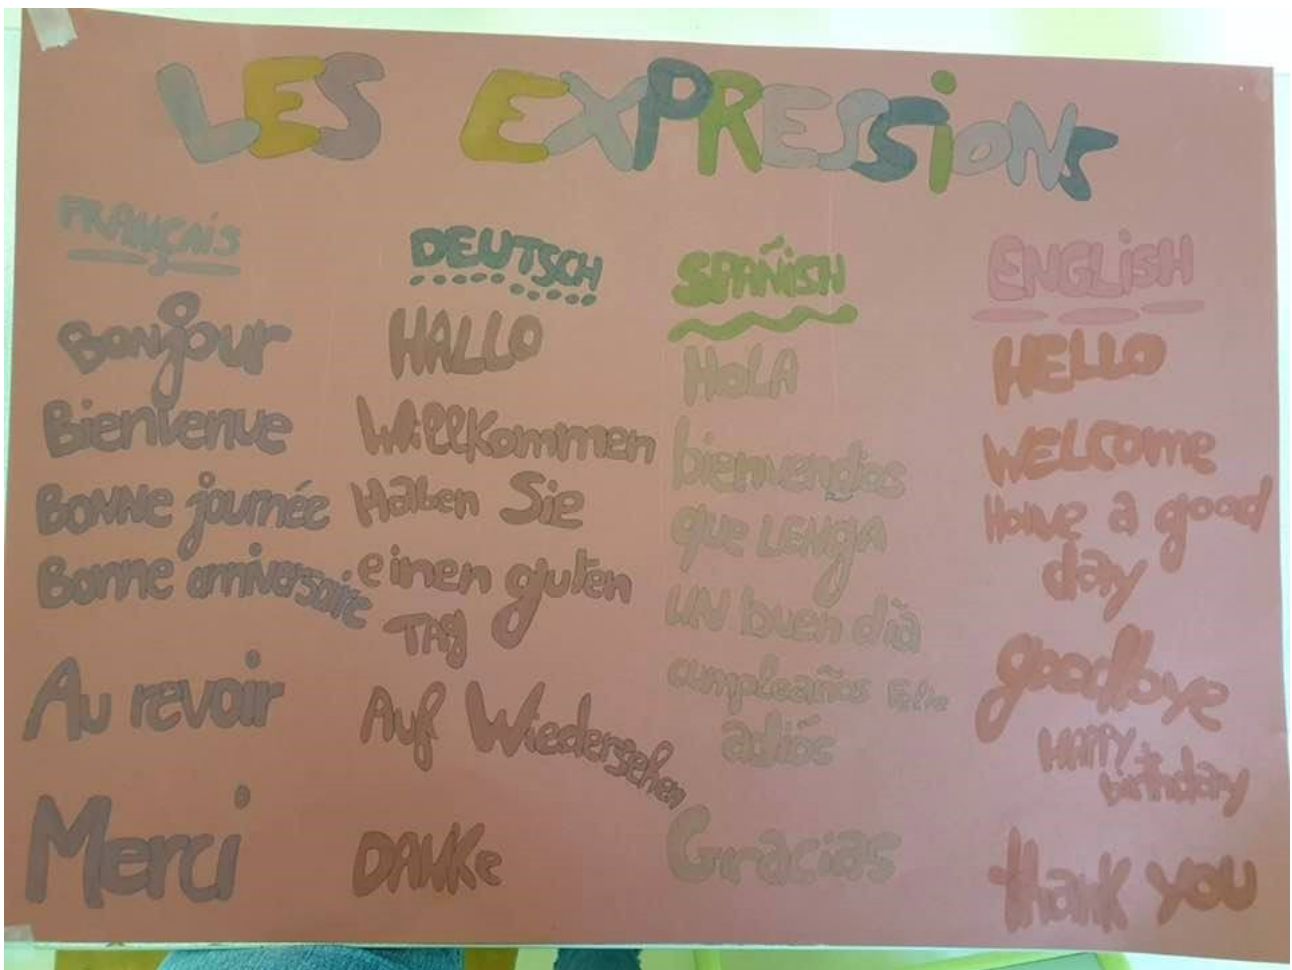 LES EXPRESSIONS
FRANÇAIS
Bonjour
Bienvenue
BONNE journée
Bonne anniversaire
Au revoir
Merci
DEUTSCH
HALLO
Willkommen
Haben Sie
einen guten
TAg
Auf Wiedersehen
DANKe
SPAÑISH
HoLA
bienvendios
que LENGA
UN buen día
cumpleaños Feliz
adiós
Gracias
ENGLiSH
HELLO
WELCome
Have a good
day
goodbye
HAPPY
birthday
thank you